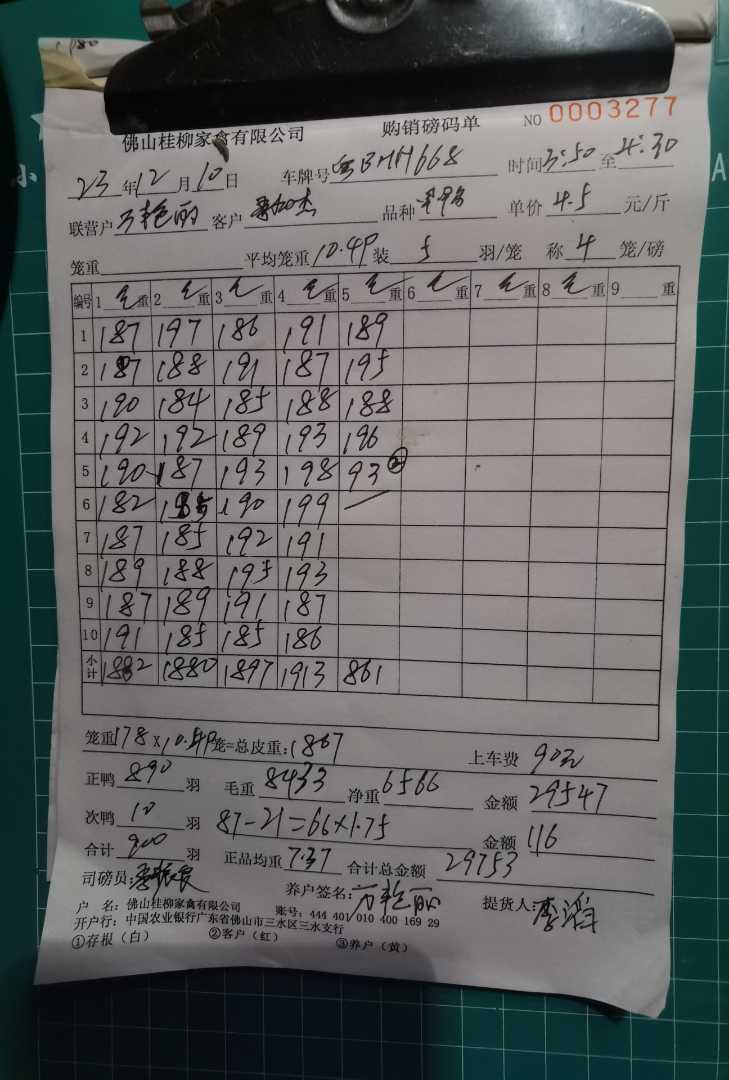 佛山桂柳家禽有限公司 购销磅码单 NO 0003277
23年12月10日 车牌号 BHH1668 时间3:50至4:30
联营户 万艳丽 客户 杰 品种 单价 4.5 元/斤
笼重 平均笼重 10.49 装 5 羽/笼 称 4 笼/磅
编号 1 毛重 2 毛重 3 毛重 4 毛重 5 毛重 6 毛重 7 毛重 8 毛重 9 重
1 187 197 186 191 189
2 187 188 191 187 195
3 190 184 185 188 188
4 192 192 189 193 196
5 190 187 193 198 93 ②
6 182 185 190 199
7 187 185 192 191
8 189 188 195 193
9 187 189 191 187
10 191 185 185 186
小计 1882 1880 1897 1913 861
笼重178×10.49笼=总皮重:1867 上车费 90元
正鸭 890 羽 毛重 8433 净重 6566 金额 29547
次鸭 10 羽 87-21=66×1.75 金额 116
合计 900 羽 正品均重 7.37 合计总金额 29753
司磅员: 养户签名: 万艳丽 提货人: 李滔
户 名: 佛山桂柳家禽有限公司 账号: 444 401 010 400 169 29
开户行: 中国农业银行广东省佛山市三水区三水支行
①存根(白) ②客户(红) ③养户(黄)